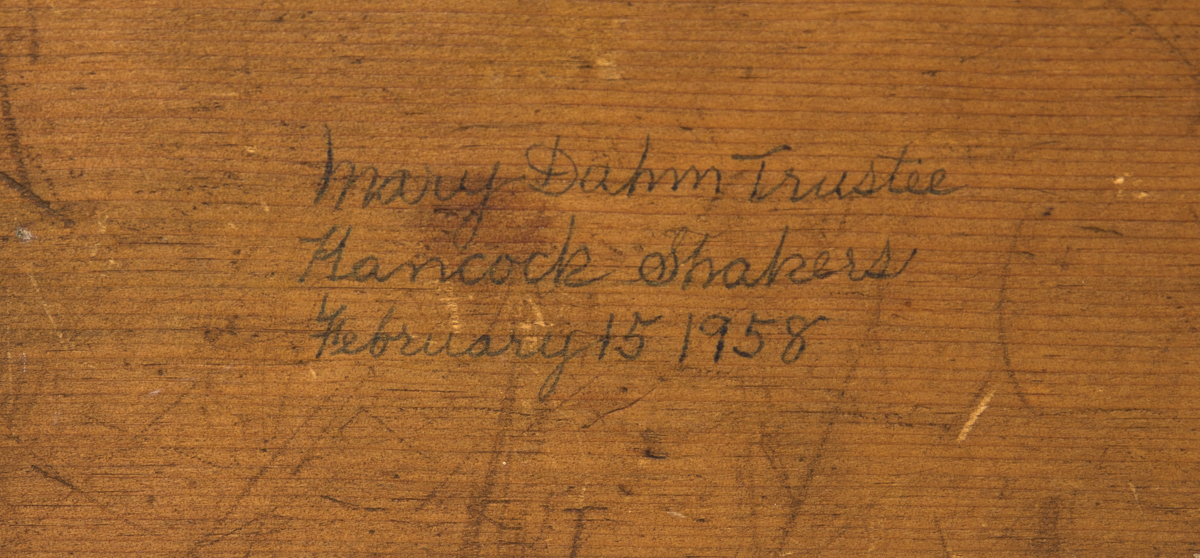 Mary Dahm Trustee
Hancock Shakers
February 15 1958